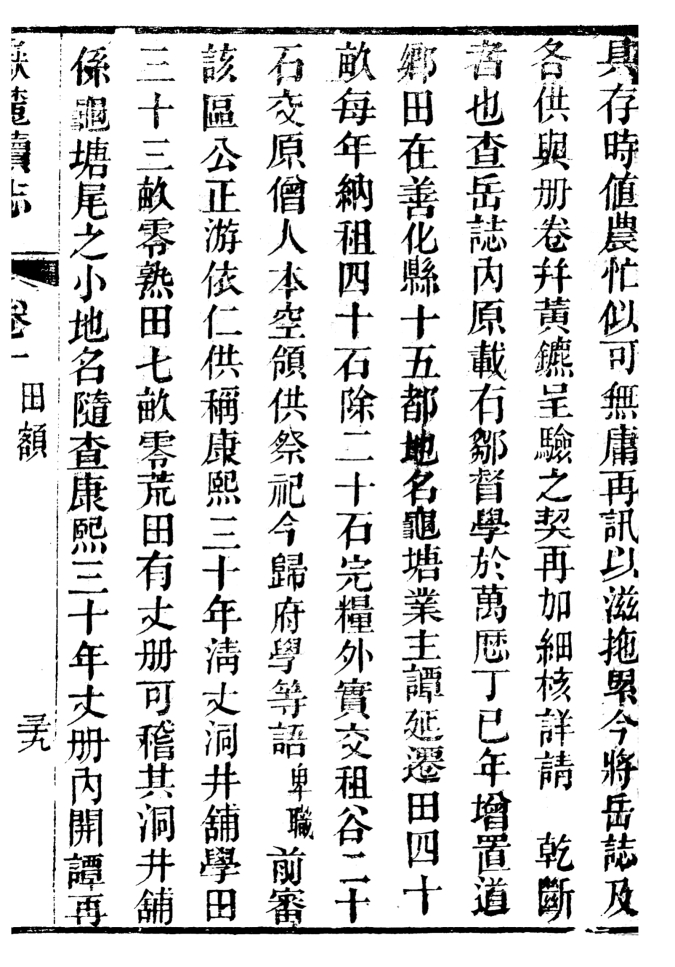 具存時值農忙似可無庸再訊以滋拖累今將岳誌及
各供與册卷幷黃鑣呈驗之契再加細核詳請　乾斷
者也查岳誌內原載右鄒督學於萬曆丁巳年增置道
鄉田在善化縣十五都地名龜塘業主譚延遷田四十
畝每年納租四十石除二十石完糧外實交租谷二十
石交原僧人本空領供祭祀今歸府學等語卑職前審
該區公正游依仁供稱康熙三十年淸丈洞井舖學田
三十三畝零熟田七畝零荒田有丈册可稽其洞井舖
係龜塘尾之小地名隨查康熙三十年丈册內開譚再
嶽麓續志　卷一　田額　三九